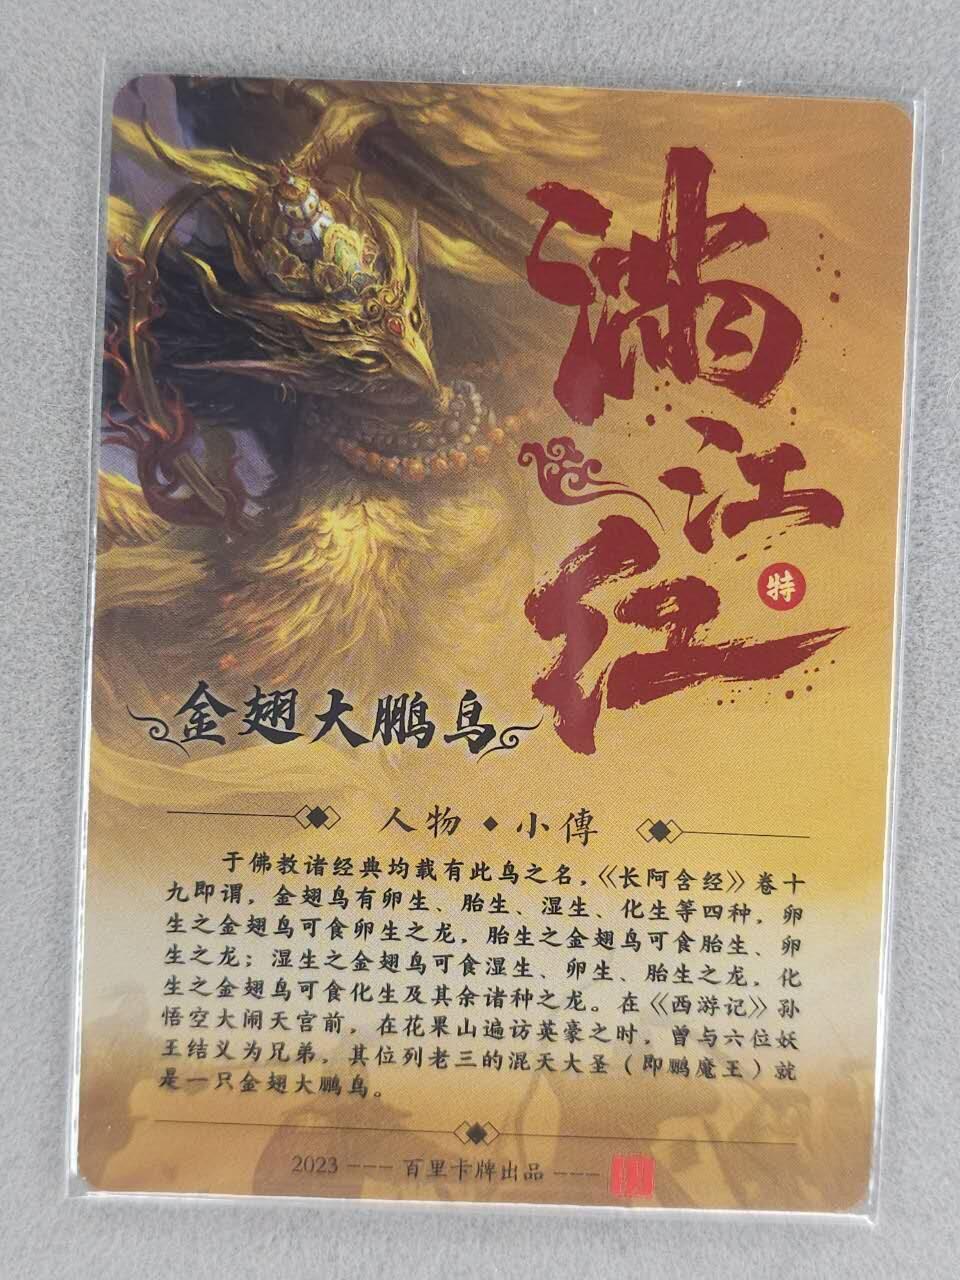 满江红
特
金翅大鹏鸟
人物◆小傳
于佛教诸经典均载有此鸟之名，《长阿含经》卷十
九即谓，金翅鸟有卵生、胎生、湿生、化生等四种，卵
生之金翅鸟可食卵生之龙，胎生之金翅鸟可食胎生、卵
生之龙；湿生之金翅鸟可食湿生、卵生、胎生之龙，化
生之金翅鸟可食化生及其余诸种之龙。在《西游记》孙
悟空大闹天宫前，在花果山遍访英豪之时，曾与六位妖
王结义为兄弟，其位列老三的混天大圣（即鹏魔王）就
是一只金翅大鹏鸟。
2023 --- 百里卡牌出品 ---